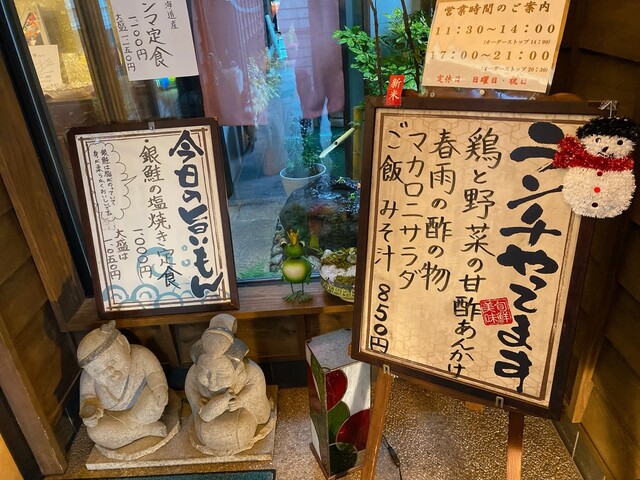 営業時間のご案内
11:30~14:00
(オーダーストップ14:00)
17:00~21:00
(オーダーストップ20:30)
定休日 日曜日・祝日
新米
ランチやってます
旬鮮
美味
鶏と野菜の甘酢あんかけ
春雨の酢の物
マカロニサラダ
ご飯 みそ汁 850円
海道産
ンマ定食
一一〇〇円
大盛一一五〇円
今日の旨いもん
・銀鮭の塩焼き定食
1000円
大盛は
1050円
銀鮭は脂がのっていて